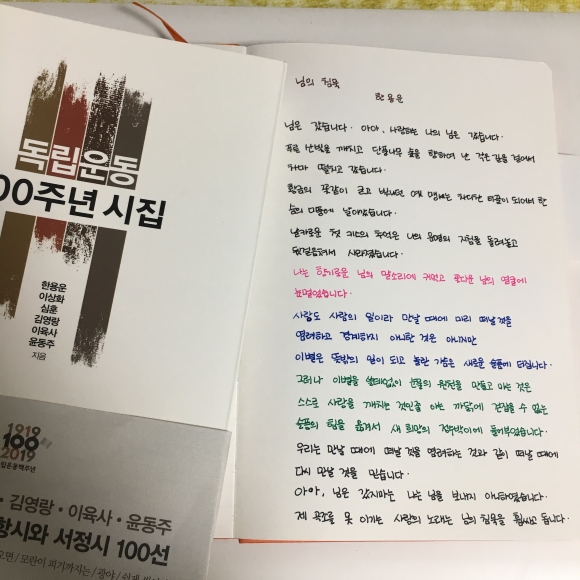 독립운동
00주년 시집
한용운
이상화
심훈
김영랑
이육사
윤동주
지음
1919
100
2019
· 김영랑 · 이육사 · 윤동주
항시와 서정시 100선
오면 / 모란이 피기까지는 / 광야 /
님의 침묵
한용운
님은 갔습니다. 아아, 사랑하는 나의 님은 갔습니다.
푸른 산빛을 깨치고 단풍나무 숲을 향하여 난 작은 길을 걸어서
차마 떨치고 갔습니다.
황금의 꽃같이 굳고 빛나던 옛 맹세는 차디찬 티끌이 되어서 한
숨의 미풍에 날아갔습니다.
날카로운 첫 키스의 추억은 나의 운명의 지침을 돌려놓고
뒷걸음쳐서 사라졌습니다.
나는 향기로운 님의 말소리에 귀먹고 꽃다운 님의 얼굴에
눈멀었습니다.
사랑도 사람의 일이라 만날 때에 미리 떠날 것을
염려하고 경계하지 아니한 것은 아니지만
이별은 뜻밖의 일이 되고 놀란 가슴은 새로운 슬픔에 터집니다.
그러나 이별을 쓸데없이 눈물의 원천을 만들고 마는 것은
스스로 사랑을 깨치는 것인줄 아는 까닭에 걷잡을 수 없는
슬픔의 힘을 옮겨서 새 희망의 정수박이에 들어부었습니다.
우리는 만날 때에 떠날 것을 염려하는 것과 같이 떠날 때에
다시 만날 것을 믿습니다.
아아, 님은 갔지마는 나는 님을 보내지 아니하였습니다.
제 곡조를 못 이기는 사랑의 노래는 님의 침묵을 휩싸고 돕니다.